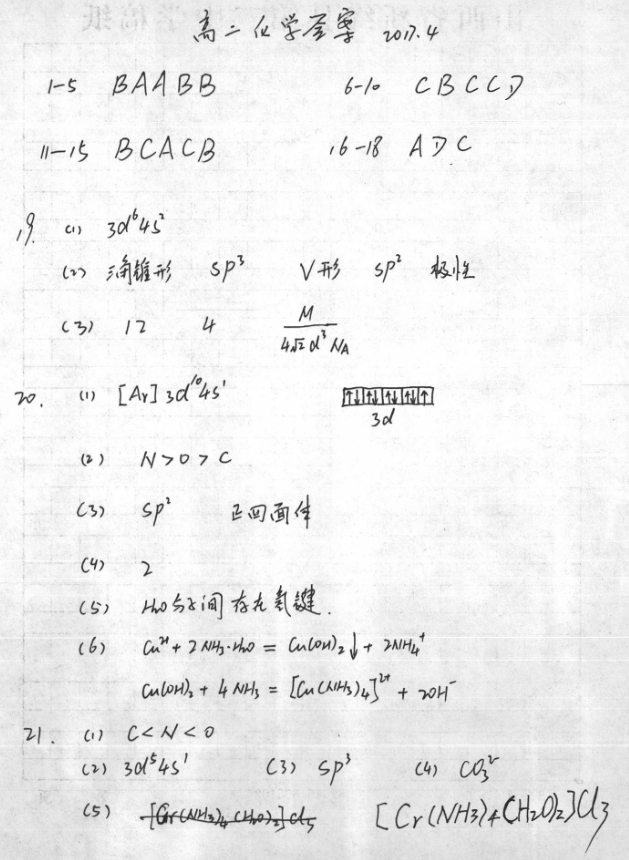 高二化学答案 2017.4
1-5 BAABB 6-10 CBCCD
11-15 BCACB 16-18 ADC
19. (1) 3d⁶4s²
(2) 三角锥形 sp³ V形 sp² 极性
(3) 12 4 M/(4√2 d³ NA)
20. (1) [Ar]3d¹⁰4s¹ ↑↓ ↑↓ ↑↓ ↑↓ ↑
3d
(2) N>O>C
(3) sp² 正四面体
(4) 2
(5) H₂O分子间存在氢键.
(6) Cu²⁺+2NH₃·H₂O = Cu(OH)₂↓+2NH₄⁺
Cu(OH)₂+4NH₃=[Cu(NH₃)₄]²⁺+2OH⁻
21. (1) C<N<O
(2) 3d⁵4s¹ (3) sp³ (4) CO₃²⁻
(5) [Cr(NH₃)₄(H₂O)₂]Cl₃ [Cr(NH₃)₄(H₂O)₂]Cl₃